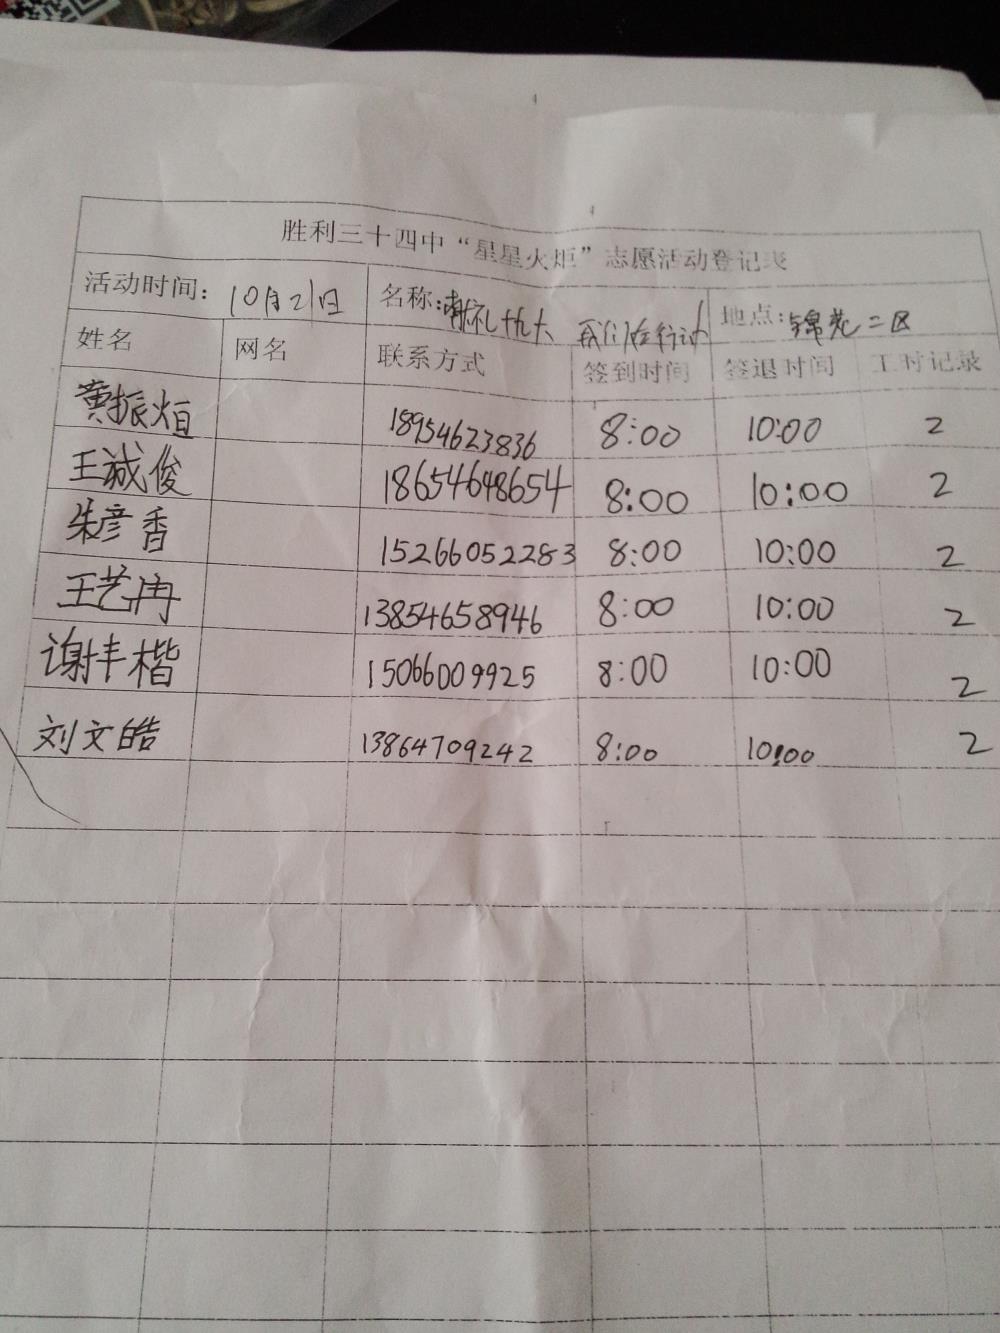 胜利三十四中“星星火炬”志愿活动登记表
活动时间：10月21日 名称：献礼十九大 我们在行动 地点：锦苑二区
姓名 网名 联系方式 签到时间 签退时间 工时记录
黄振烜 18954623836 8:00 10:00 2
王诚俊 18654648654 8:00 10:00 2
朱彦香 15266052283 8:00 10:00 2
王艺冉 13854658946 8:00 10:00 2
谢丰楷 15066009925 8:00 10:00 2
刘文皓 13864709242 8:00 10:00 2